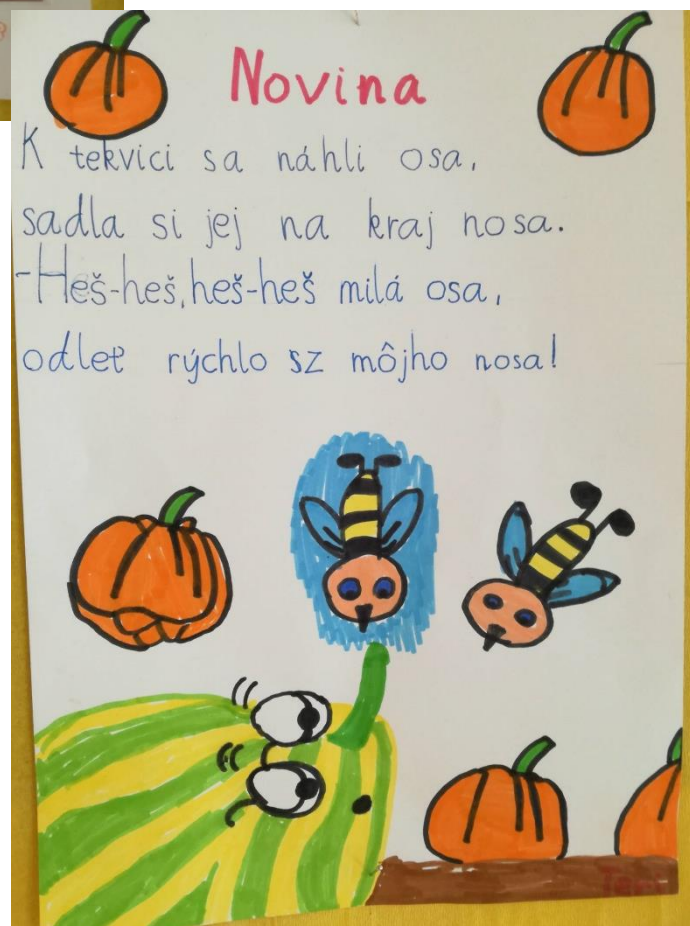 Novina
K tekvici sa náhli osa,
sadla si jej na kraj nosa.
-Heš-heš, heš-heš milá osa,
odleť rýchlo sz môjho nosa!